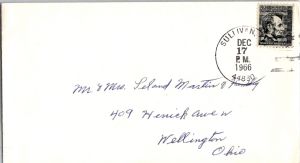 SULLIVAN
DEC
17
P.M.
1966
Mr & Mrs. Leland Martin & Family
409 Herrick Ave W
Wellington
Ohio